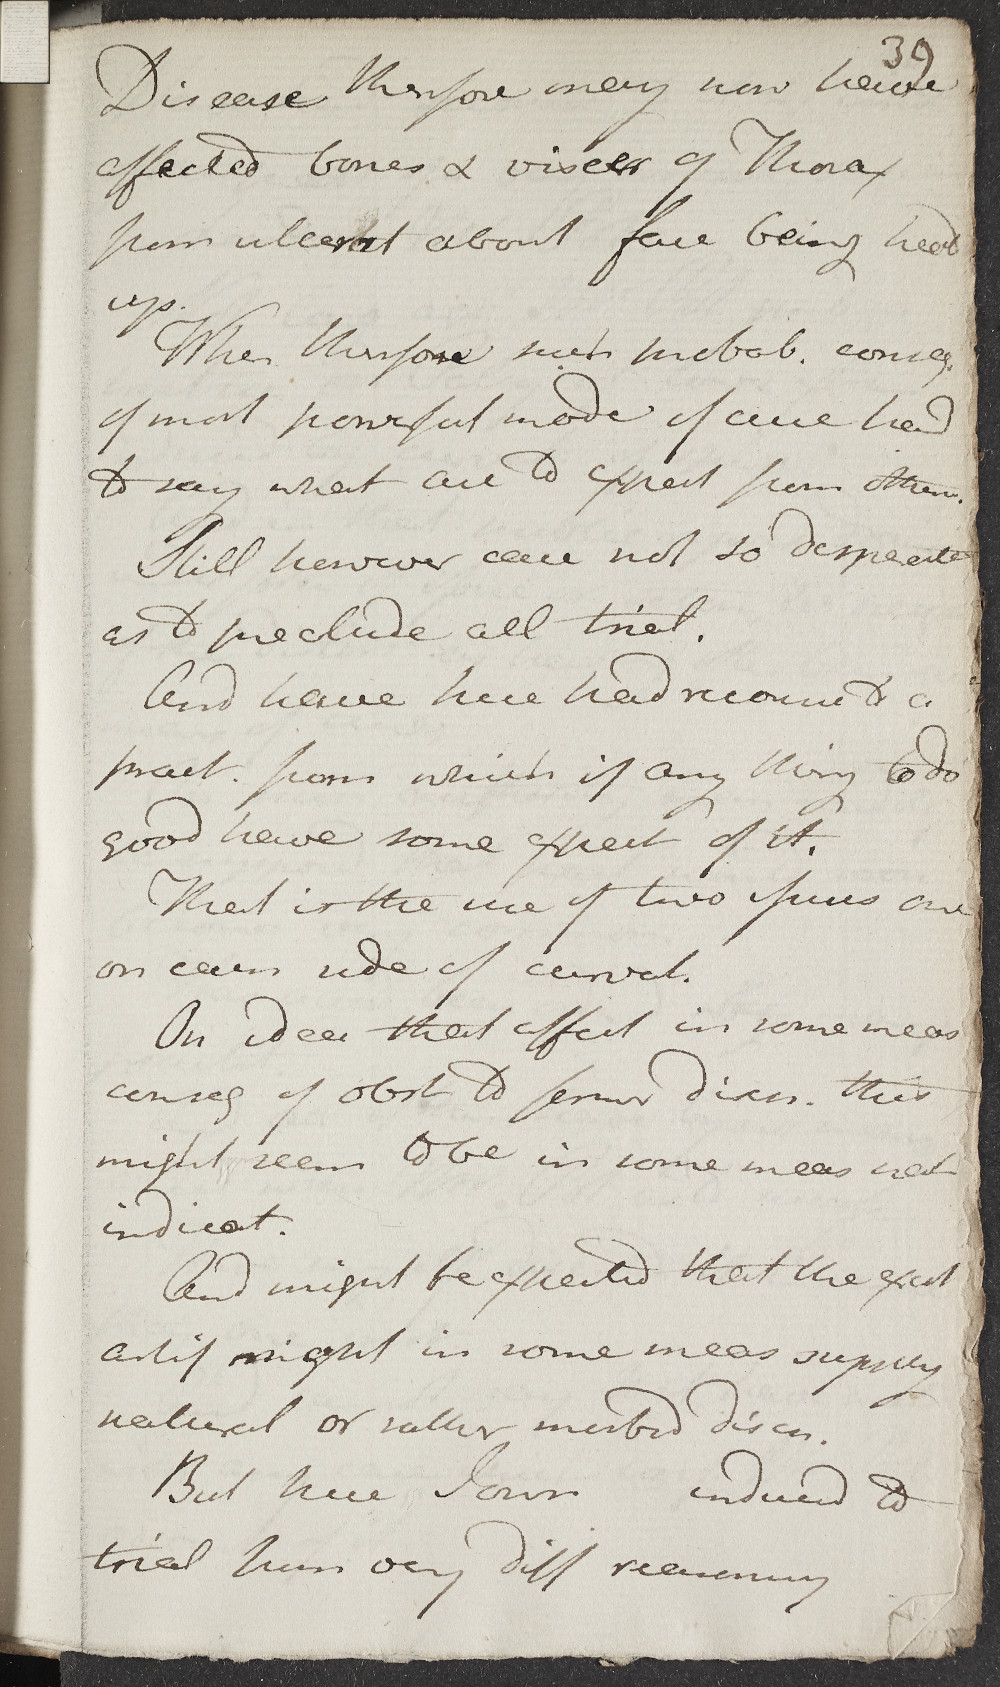 39
Disease therefore may now have
affected bones & viscer of Thorax
from ulcerat about face being heal
up.
When therefore such probab. conseq.
of most powerful mode of cure hard
to say what are to expect from others.
Still however case not so desperate
as to preclude all trial.
And have here had recourse to a
pract. from which if any thing to do
good have some expect of it.
That is the use of two issues one
on each side of curvat.
On idea that affect in some meas
conseq of obst to former disch. this
might seem to be in some meas nat
indicat.
And might be expected that the exist
artif might in some meas supply
natural or rather morbid disch.
But here I own induced to
trial from very diff reasoning